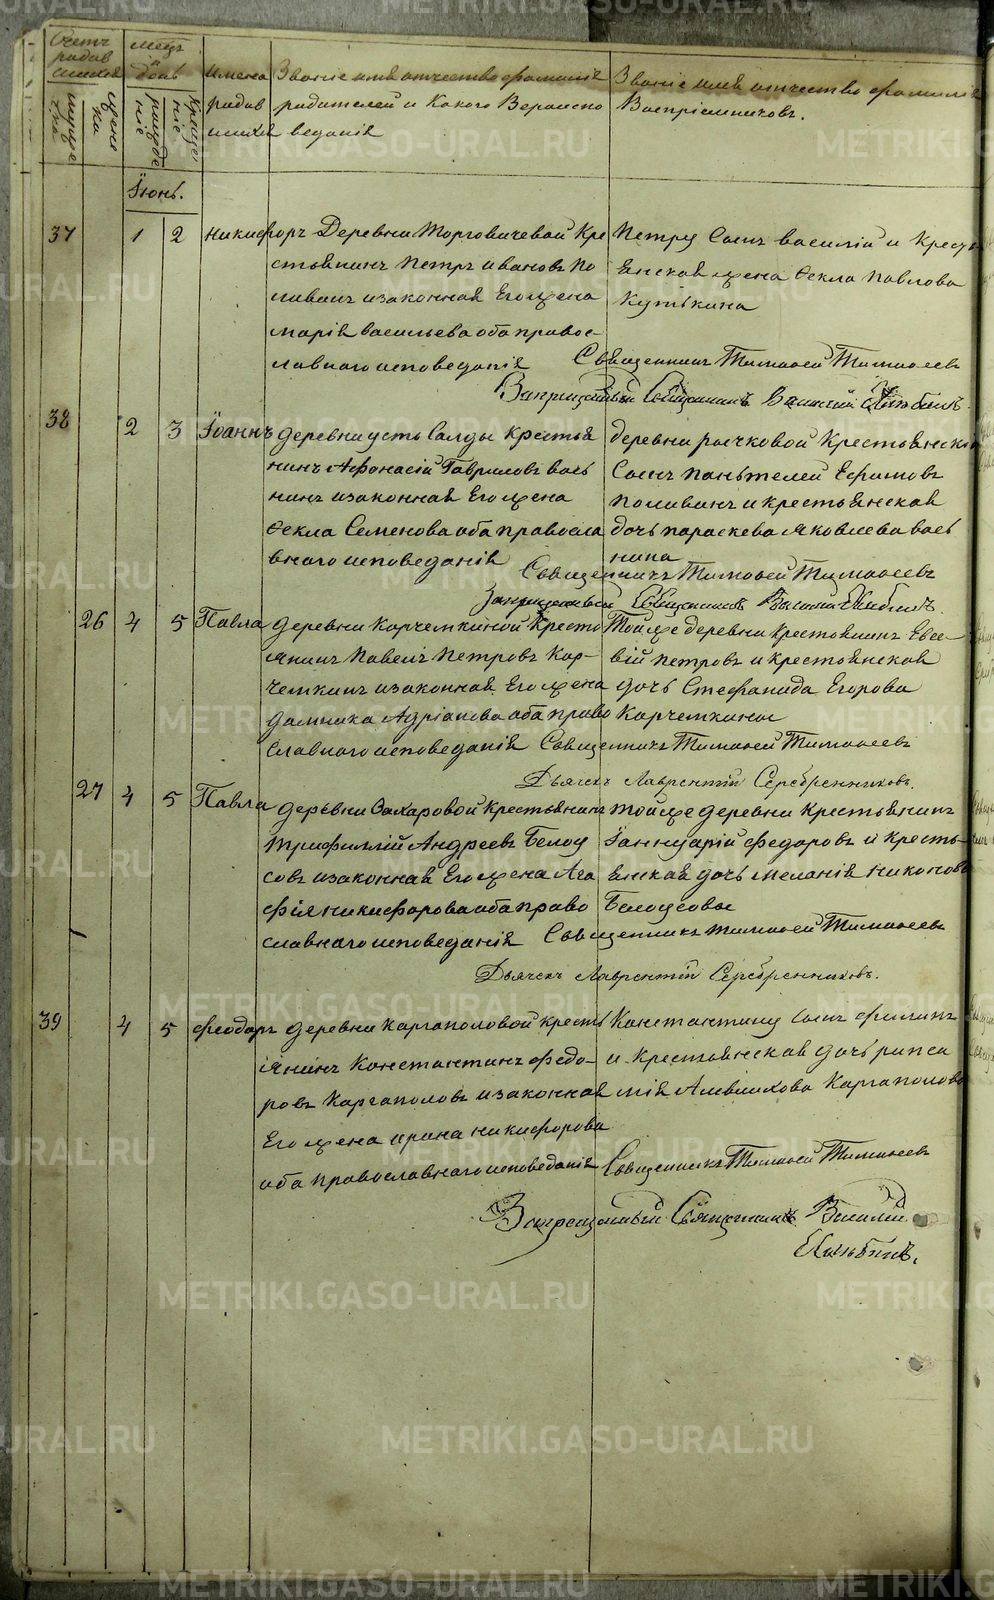 Счетъ родившихся
мужеска
женска
Мѣсяцъ и день
рожденіе
крещеніе
Имена родившихся
Званіе имя отчество фамилія
родителей и какого вероиспо
веданія
Званіе имя отчество фамилія
Воспріемниковъ.
Іюнь.
37 1 2 Никифоръ
Деревни Торговичевой Кре
стьянинъ Петръ Ивановъ По
ливинъ и законная Его жена
Марія Васильева оба правос
лавнаго исповеданія
Петру Сынъ Василій и Кресть
янская жена Фекла Павлова
Кутькина
Священникъ Тимофей Тимофеевъ
Запрещенный Священникъ Василій
38 2 3 Іоаннъ
деревни усть Салды Крестья
нинъ Афонасій Гавриловъ Вось
нинъ и законная Его жена
Фекла Семенова оба правосла
внаго исповеданія
деревни рычковой Крестьянскій
Сынъ Паньтелей Ефимовъ
Поливинъ и крестьянская
дочь параскева Яковлева Вось
нина
Священникъ Тимофей Тимофеевъ
Запрещенный Священникъ Василій
26 4 5 Павла
деревни Корчемкиной Кресть
янинъ Павелъ Петровъ Кор-
чемкинъ и законная Его жена
Домника Адріанова оба право
славнаго исповеданія
Той же деревни Крестьянинъ Евсе-
вій Петровъ и крестьянская
дочь Стефанида Егорова
Корчемкины
Священникъ Тимофей Тимофеевъ
Дьячекъ Лаврентій Серебренниковъ.
27 4 5 Павла
деревни Захаровой Крестьянинъ
Трифиллій Андреевъ Белоу
совъ и законная Его жена Ага
фія Никифорова оба право
славнаго исповеданія
той же деревни Крестьянинъ
Іаннуарій Федоровъ и Кресть-
янская дочь Меланія Никонова
Белоусовы
Священникъ Тимофей Тимофеевъ
Дьячекъ Лаврентій Серебренниковъ.
39 4 5 Феодоръ
деревни Каргаполовой кресть
янинъ Константинъ Федо-
ровъ Каргаполовъ и законная
Его жена Ирина Никифорова
оба православнаго исповеданія
Константину Сынъ Филипъ
и крестьянская дочь рипса
мія Каргаполова
Священникъ Тимофей Тимофеевъ
Запрещенный Священникъ Василій
METRIKI.GASO-URAL.RU